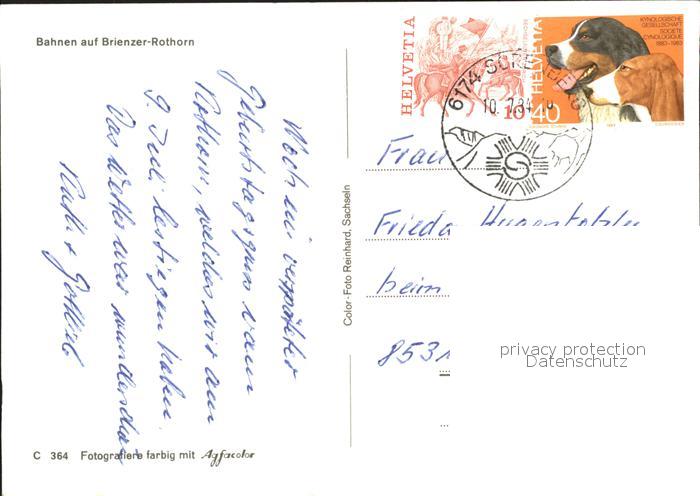 Bahnen auf Brienzer-Rothorn
Noch ein verspäteter
Geburtstagsgruss vom
Rothorn, welches wir am
9. Juli bestiegen haben.
Das Wetter war wunderbar
Ruth + Gottlieb
C 364 Fotografiere farbig mit Agfacolor
Color-Foto Reinhard, Sachseln
HELVETIA
10
HELVETIA
40
KYNOLOGISCHE
GESELLSCHAFT
SOCIÉTÉ
CYNOLOGIQUE
1883-1983
6174 SÖRENBERG
10.7.84
Frau
Frieda
beim
8531
privacy protection
Datenschutz